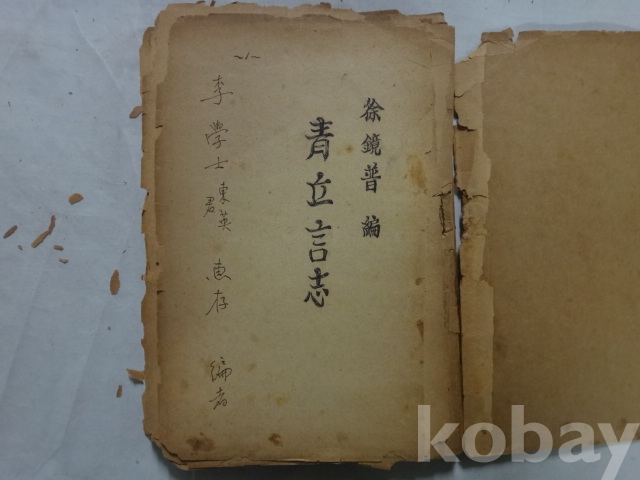 徐鏡普 編
青丘言志
~1~
李學士東英君 惠存 編者
kobay